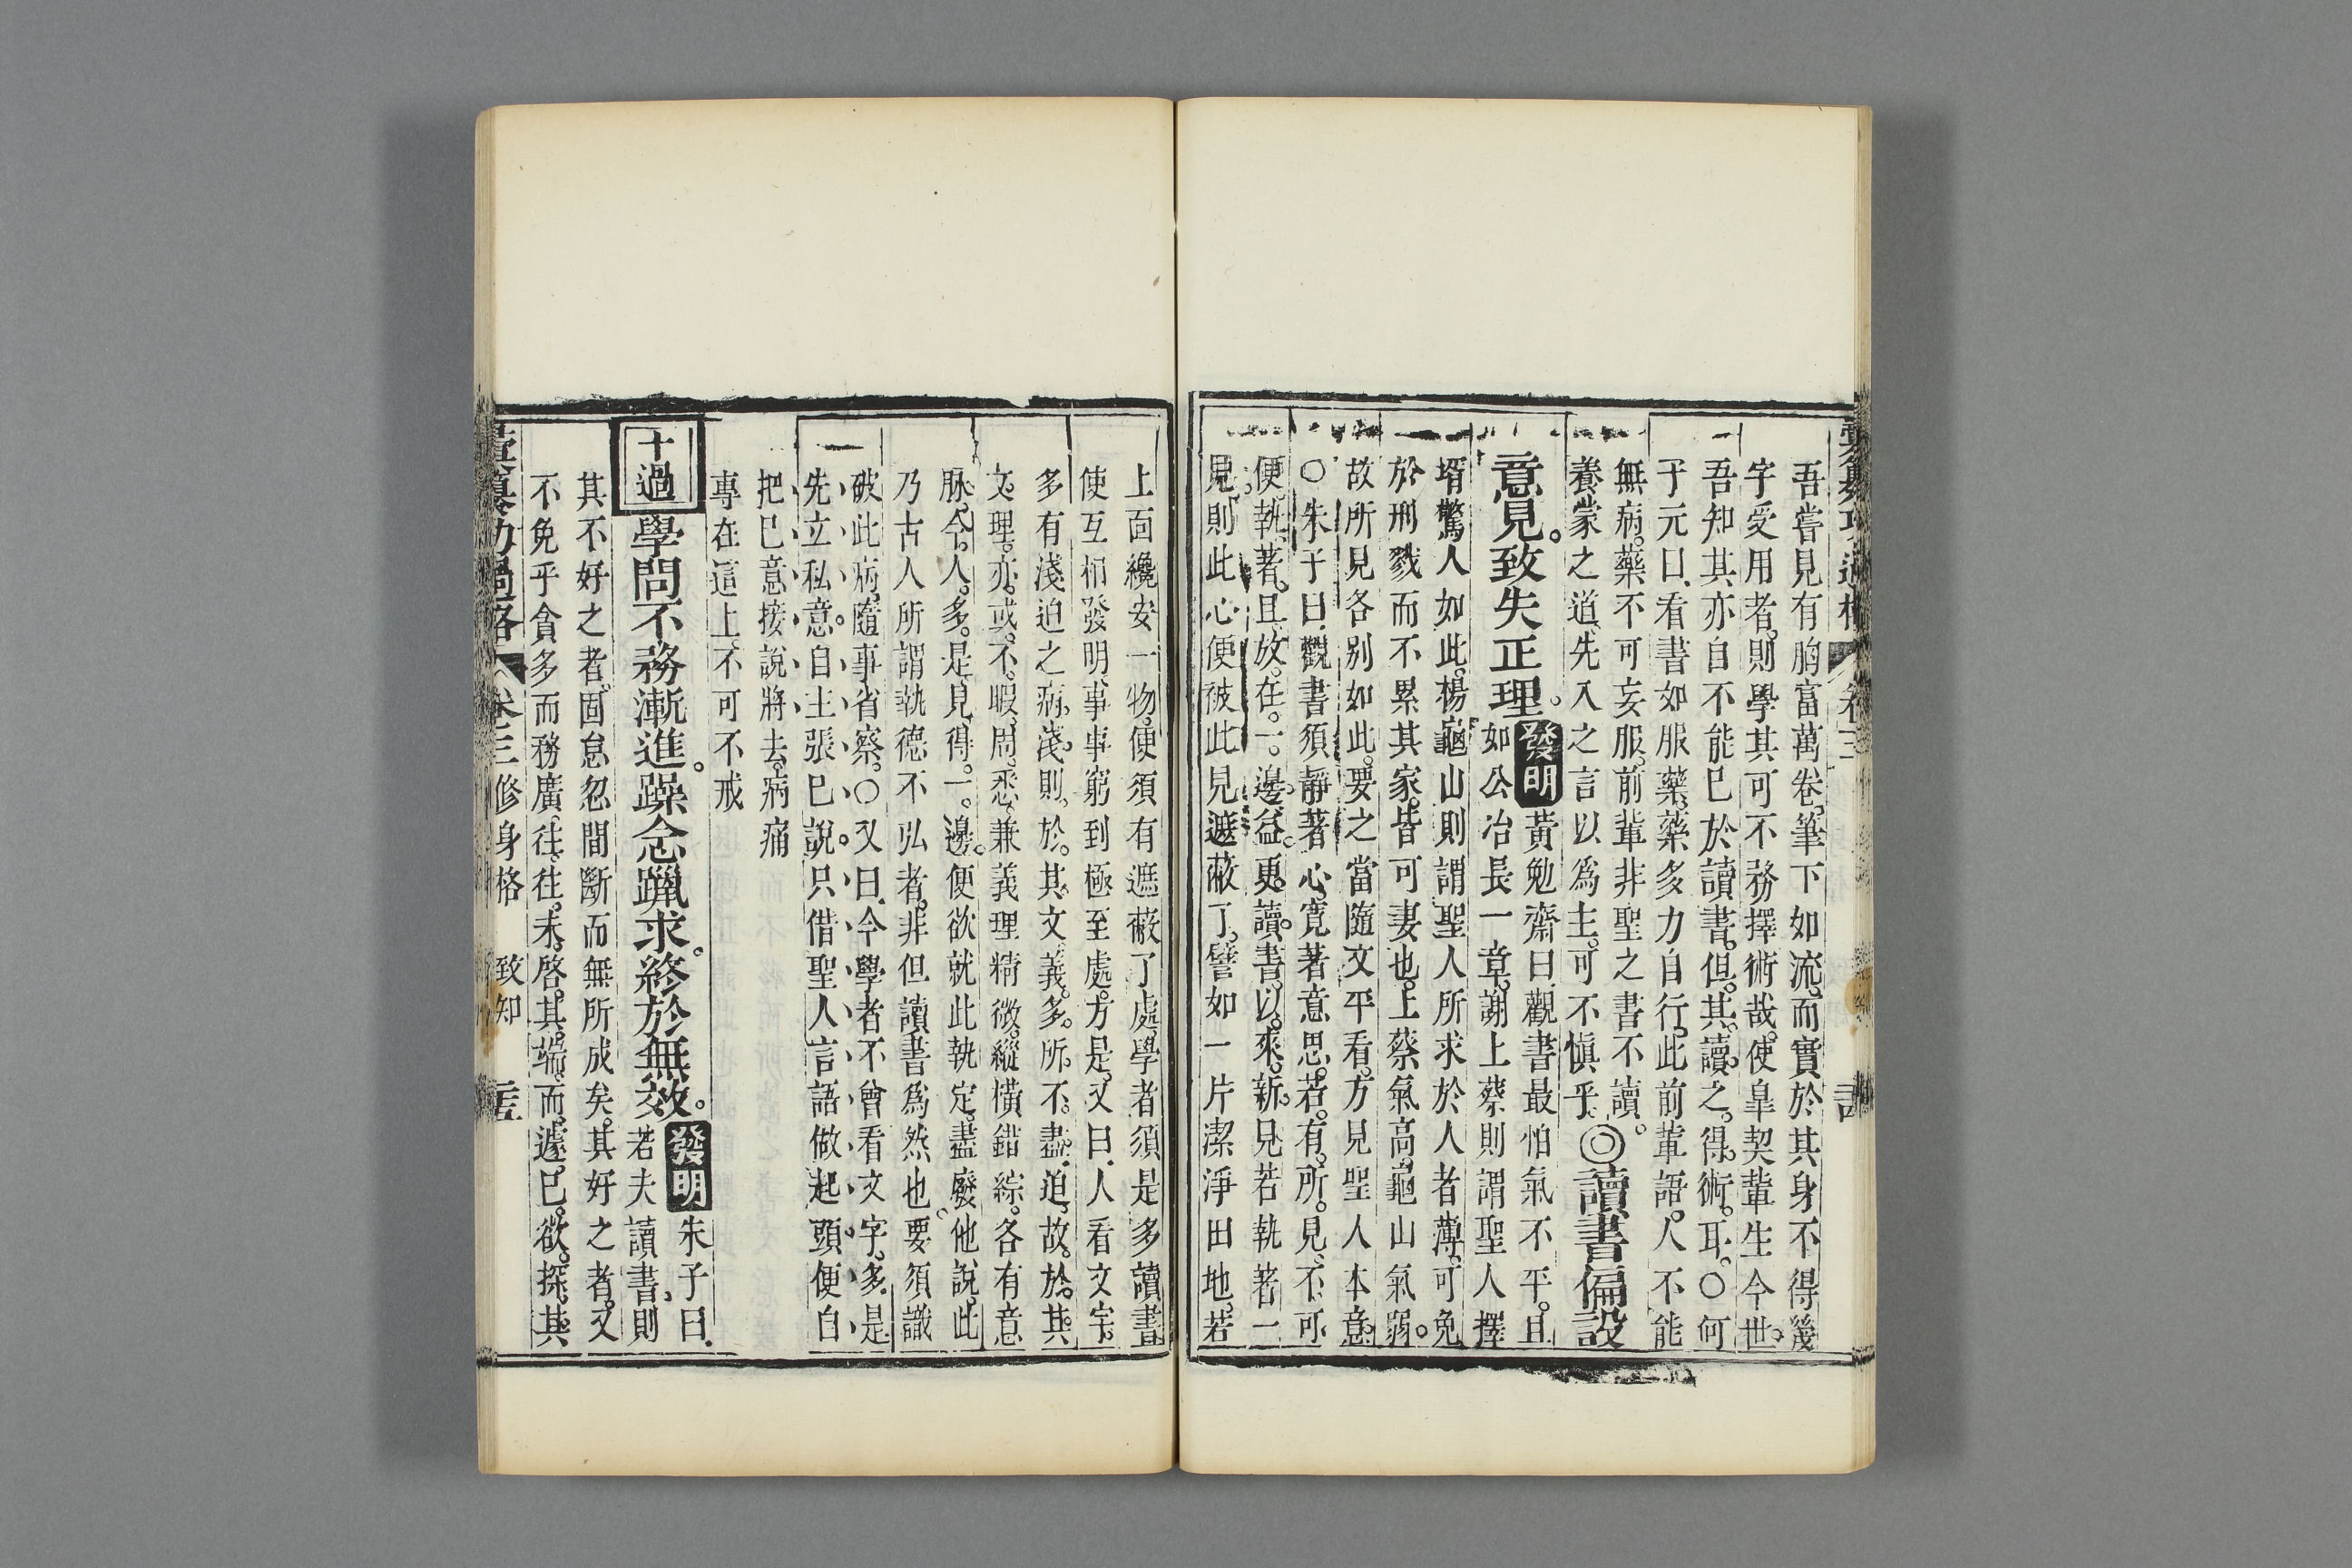 彙纂功過格 卷三
吾嘗見有胸富萬卷。筆下如流。而實於其身不得幾
字受用者。則學其可不務擇術哉。使皐契輩生今世。
吾知其亦自不能已於讀書。但其讀之得術耳。○何
子元曰。看書如服藥。藥多力自行。此前輩語。人不能
無病。藥不可妄服。前輩非聖之書不讀。
養蒙之道。先入之言以爲主。可不愼乎。◎讀書偏設
意見。致失正理。發明黃勉齋曰。觀書最怕氣不平。且
如公冶長一章。謝上蔡則謂聖人擇
壻驚人如此。楊龜山則謂聖人所求於人者薄。可免
於刑戮而不累其家。皆可妻也。上蔡氣高。龜山氣弱。
故所見各別如此。要之當隨文平看。方見聖人本意。
○朱子曰。觀書須靜著心。寛著意思。若有所見。不可
便執著。且放在一邊。益更讀書。以來新見。若執著一
見。則此心便被此見遮蔽了。譬如一片潔淨田地。若
上面纔安一物。便須有遮蔽了處。學者須是多讀書
使互相發明。事事窮到極至處。方是。又曰。人看文字。
多有淺迫之病。淺則於其文義多所不盡。迫故於其
文理亦或不暇周悉。兼義理精微。縱橫錯綜。各有意
脉。今人多是見得一邊。便欲就此執定。盡廢他說。此
乃古人所謂執德不弘者。非但讀書爲然也。要須識
破此病。隨事省察。○又曰。今學者不曾看文字。多是
先立私意。自主張己說。只借聖人言語做起頭。便自
把己意接說將去。病痛
專在這上。不可不戒
十過 學問不務漸進。躁念躐求。終於無效。發明朱子曰。
若夫讀書。則
其不好之者。固怠忽間斷而無所成矣。其好之者。又
不免乎貪多而務廣。往往未啓其端。而遽已欲探其
彙纂功過格 卷三 修身格 致知